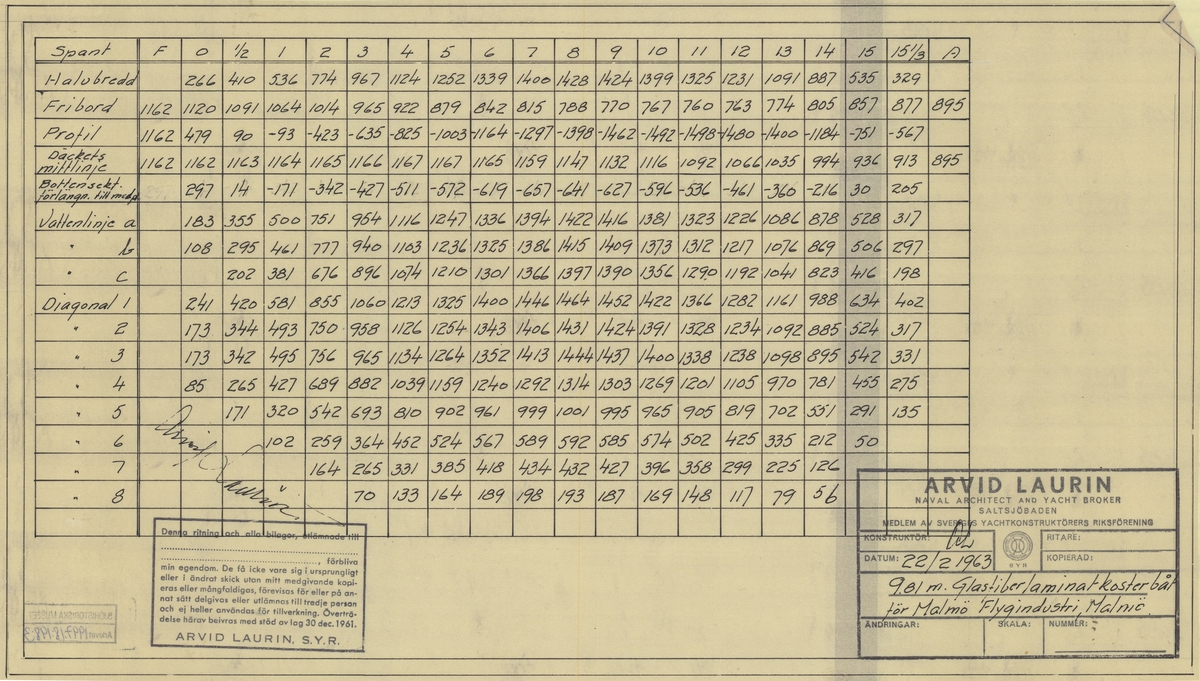 Spant F 0 1/2 1 2 3 4 5 6 7 8 9 10 11 12 13 14 15 15 1/3 A
Halvbredd 266 410 536 774 967 1124 1252 1339 1400 1428 1424 1399 1325 1231 1091 887 535 329
Fribord 1162 1120 1091 1064 1014 965 922 879 842 815 788 770 767 760 763 774 805 857 877 895
Profil 1162 479 90 -93 -423 -635 -825 -1003 -1164 -1297 -1398 -1462 -1492 -1498 -1480 -1400 -1184 -751 -567
Däckets
mittlinje 1162 1162 1163 1164 1165 1166 1167 1167 1165 1159 1147 1132 1116 1092 1066 1035 994 936 913 895
Bottensekt.
förlängn. till medpl. 297 14 -171 -342 -427 -511 -572 -619 -657 -641 -627 -596 -536 -461 -360 -216 30 205
Vattenlinje a 183 355 500 751 954 1116 1247 1336 1394 1422 1416 1381 1323 1226 1086 878 528 317
" b 108 295 461 777 940 1103 1236 1325 1386 1415 1409 1373 1312 1217 1076 869 506 297
" c 202 381 676 896 1074 1210 1301 1366 1397 1390 1356 1290 1192 1041 823 416 198
Diagonal 1 241 420 581 855 1060 1213 1325 1400 1446 1464 1452 1422 1366 1282 1161 988 634 402
" 2 173 344 493 750 958 1126 1254 1343 1406 1431 1424 1391 1328 1234 1092 885 524 317
" 3 173 342 495 756 965 1134 1264 1352 1413 1444 1437 1400 1338 1238 1098 895 542 331
" 4 85 265 427 689 882 1039 1159 1240 1292 1314 1303 1269 1201 1105 970 781 455 275
" 5 171 320 542 693 810 902 961 999 1001 995 965 905 819 702 551 291 135
" 6 102 259 364 452 524 567 589 592 585 574 502 425 335 212 50
" 7 164 265 331 385 418 434 432 427 396 358 299 225 126
" 8 70 133 164 189 198 193 187 169 148 117 79 56
Arvid Laurin
Denna ritning och alla bilagor, utlämnade till
, förbliva
min egendom. De få icke vare sig i ursprungligt
eller i ändrat skick utan mitt medgivande kopi-
eras eller mångfaldigas, förevisas för eller på an-
nat sätt delgivas eller utlämnas till tredje person
och ej heller användas för tillverkning. Överträ-
delse härav beivras med stöd av lag 30 dec. 1961.
ARVID LAURIN, S.Y.R.
ARVID LAURIN
NAVAL ARCHITECT AND YACHT BROKER
SALTSJÖBADEN
MEDLEM AV SVERIGES YACHTKONSTRUKTÖRERS RIKSFÖRENING
KONSTRUKTÖR: RITARE:
DATUM: 22/2 1963 SYR KOPIERAD:
9.81 m. Glasfiberlaminatkosterbåt
för Malmö Flygindustri, Malmö.
ÄNDRINGAR: SKALA: NUMMER:
SJÖHISTORISKA MUSEET